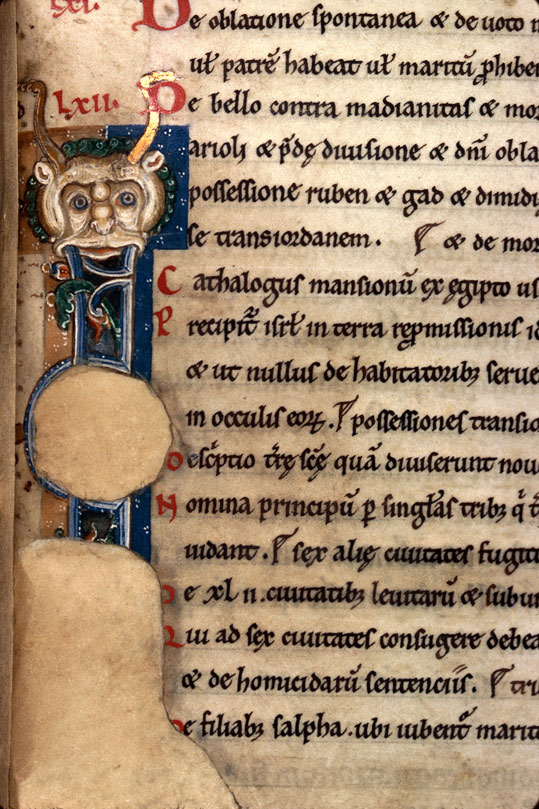 De oblatione spontanea & de uoto m
uł patrē habeat uł maritū ꝓhiben
LXII. De bello contra madianitas & mor
arioli & p̄dę diuisione & dn̄i obla
possessione ruben & gad & dimidię
se transiordanem. & de mor
Cathalogus mansionū ex egipto us
Precipit̄ isrł in terra repmissionis
& ut nullus de habitatoribꝫ serue
in occulis eoꝝ. possessiones transio
Descͥptio tr̄ę scę̄ quā diuiserunt nou
Nomina principū ꝑ singłas tribꝫ qͥ
uidant. sex alię ciuitates fugiti
De xl n. ciuitatibꝫ leuitarū & subur
Qui ad sex ciuitates confugere debea
& de homicidarū sentenciis. tri
De filiabꝫ salpha.ubi iubent̄ marit